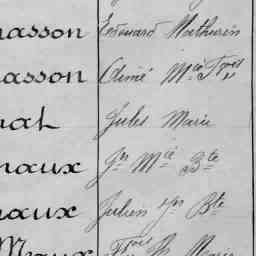 asson Edouard Mathurin
asson Aimé Mce Fçois
nat Jules Marie
naux Jn Mie Bte
naux Julien Jn Bte
Meaux Fçois Marie